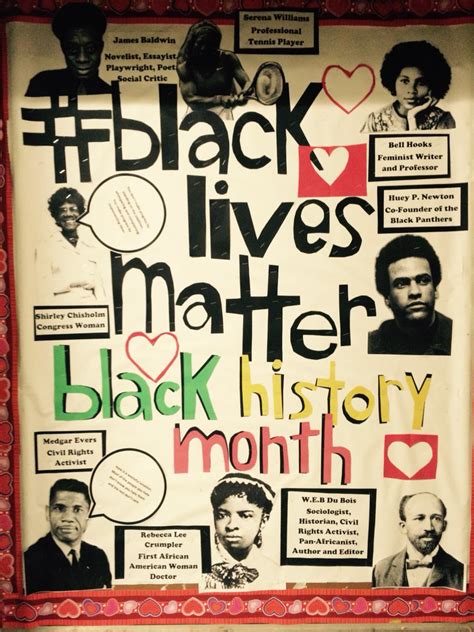 James Baldwin
Novelist, Essayist
Playwright, Poet,
Social Critic
Serena Williams
Professional
Tennis Player
#black
lives
matter
Bell Hooks
Feminist Writer
and Professor
Huey P. Newton
Co-Founder of the
Black Panthers
Shirley Chisholm
Congress Woman
black history
month
Medgar Evers
Civil Rights
Activist
Rebecca Lee
Crumpler
First African
American Woman
Doctor
W.E.B Du Bois
Sociologist,
Historian, Civil
Rights Activist,
Pan-Africanist,
Author and Editor